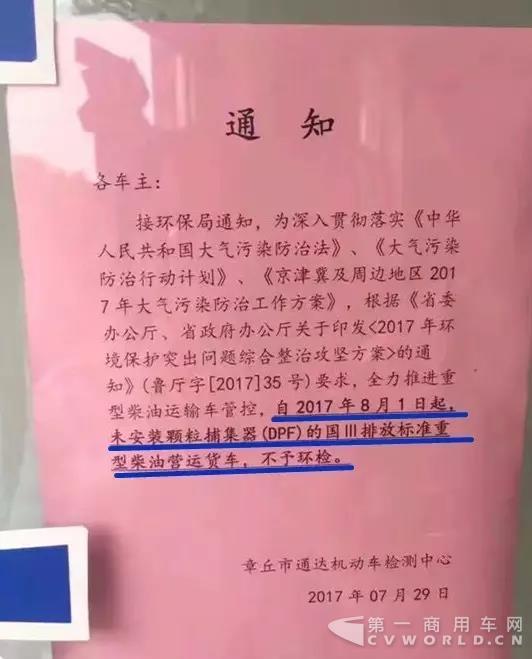 通 知
各车主：
接环保局通知，为深入贯彻落实《中华
人民共和国大气污染防治法》、《大气污染
防治行动计划》、《京津冀及周边地区 2017
年大气污染防治工作方案》，根据《省委
办公厅、省政府办公厅关于印发<2017 年环
境保护突出问题综合整治攻坚方案>的通
知》(鲁厅字[2017]35 号)要求，全力推进重
型柴油运输车管控，自 2017 年 8 月 1 日起，
未安装颗粒捕集器(DPF)的国Ⅲ排放标准重
型柴油营运货车，不予环检。
章丘市通达机动车检测中心
2017 年 07 月 29 日
第一商用车网
CVWORLD.CN